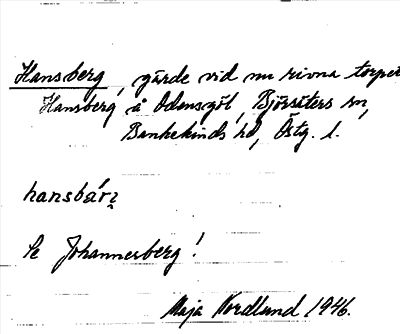 Hansberg, gärde vid nu rivna torpet
Hansberg å Odensgöl, Björsäters sn,
Bankekinds hd, Östg. l.
hansbárȝ
Se Johannesberg!
Maja Nordlund 1946.